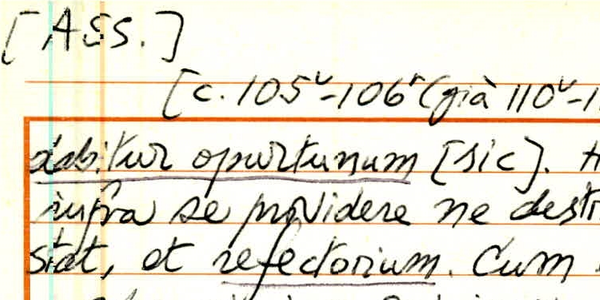 [ASS.]
[c. 105v-106r (già 110v-1
dabitur opurtunum [sic].
infra se providere ne destr
stat, et refectorium. Cum